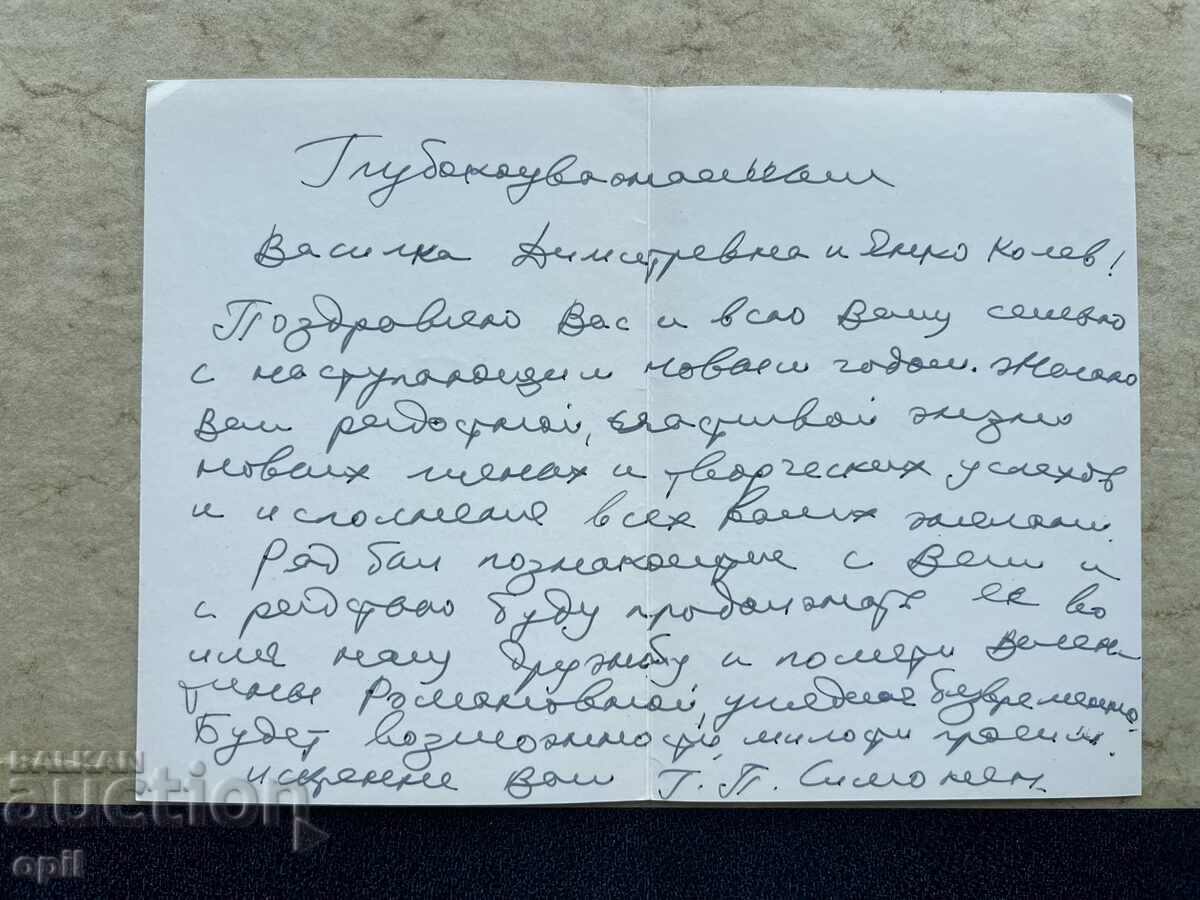 Глубокоуважаемый
Василка Димитревна и Янко Колев!
Поздравляю Вас и всю Вашу семью
с наступающим новым годом. Желаю
Вам радостной, счастливой жизни
новых и творческих успехов
и исполнения всех Ваших желаний.
Рад был с Вами и
с радостью буду продолжать ее во
имя нашу дружбу и памяти Вален-
тины Романовной, безвременно
Будет возможность, милости просим.
искренне Ваш Г. П. Симонен
BALKAN
auction
opil